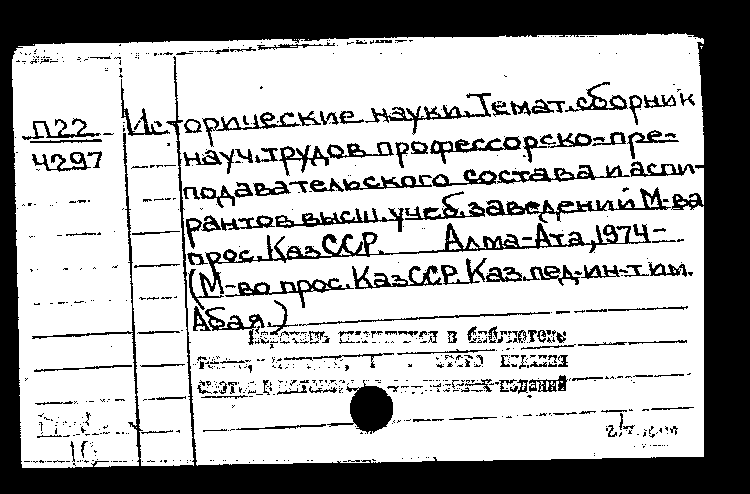 П22
4297
Исторические науки. Темат. сборник
науч. трудов профессорско-пре-
подавательского состава и аспи-
рантов высш. учеб. заведений М-ва
прос. КазССР. Алма-Ата, 1974-
(М-во прос. КазССР. Каз. пед. ин-т им.
Абая.)
в библиотеке
этого издания
изданий
10